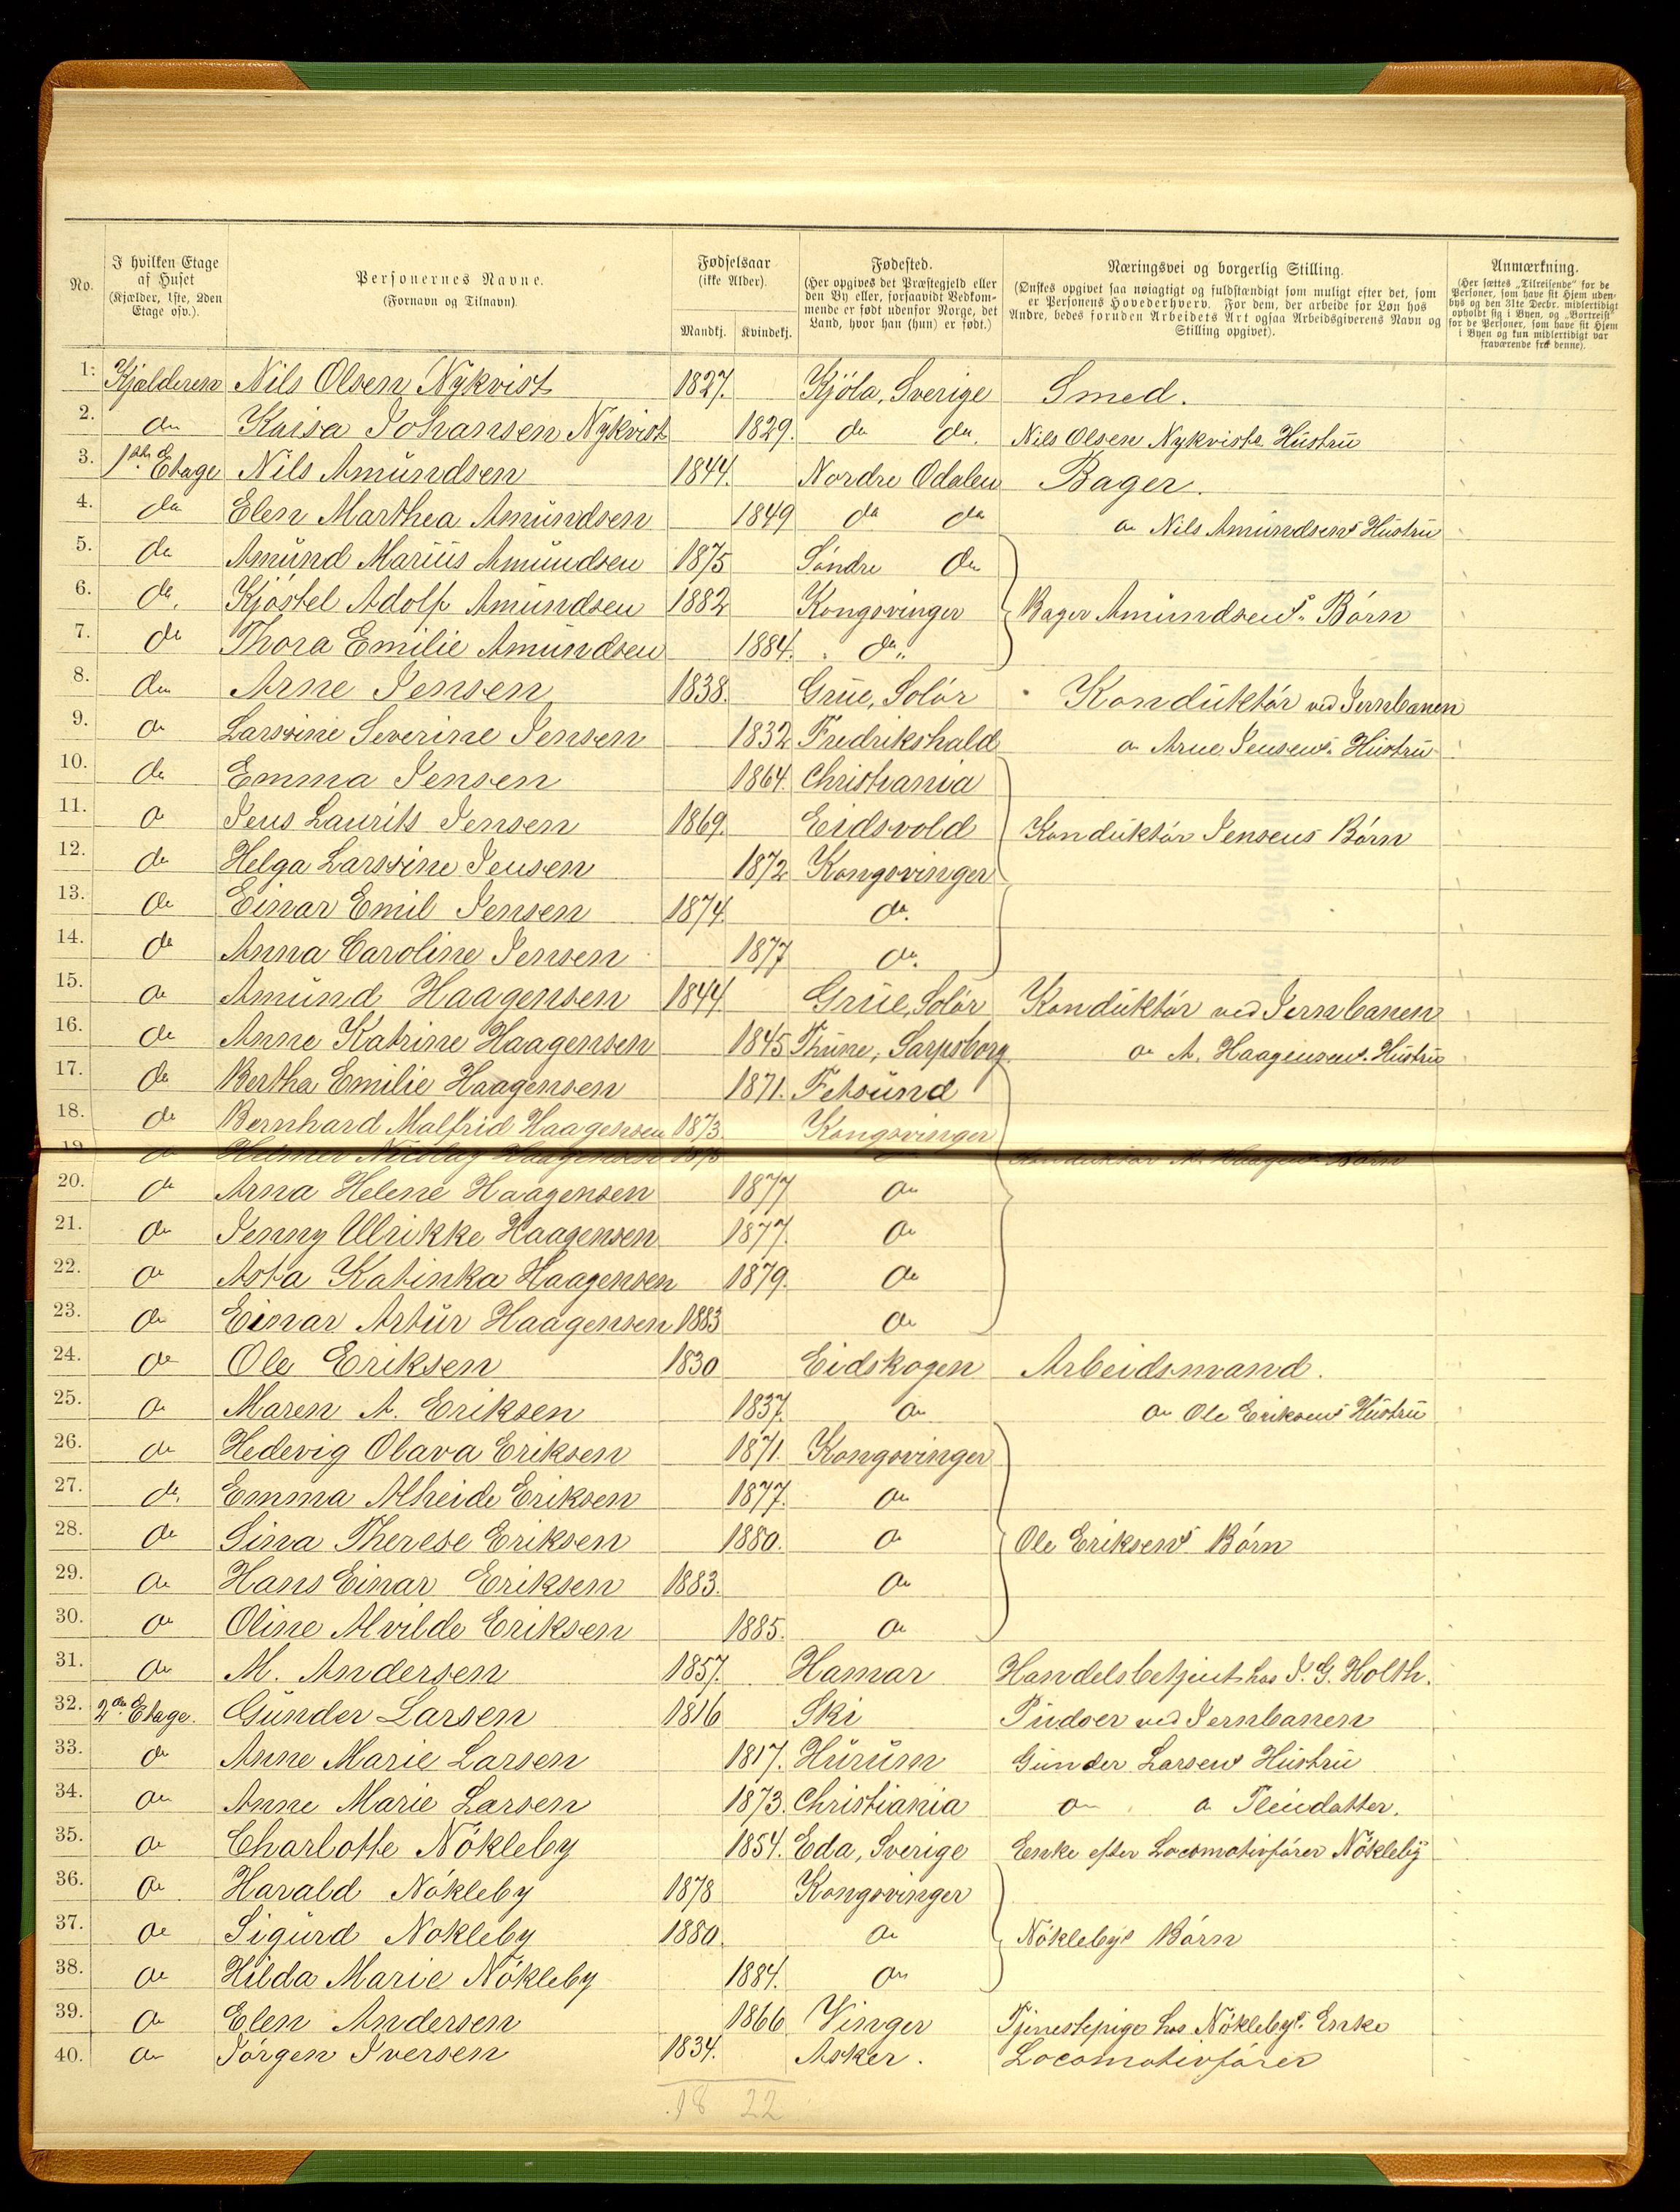 No. | I hvilken Etage af Huset (Kjælder, 1ste, 2den Etage osv.). | Personernes Navne. (Fornavn og Tilnavn). | Fødselsaar (ikke Alder). Mandkj. | Kvindekj. | Fødested. (Her opgives det Præstegjeld eller den By eller, forsaavidt Vedkommende er født udenfor Norge, det Land, hvor han (hun) er født.) | Næringsvei og borgerlig Stilling. (Ønskes opgivet saa nøiagtigt og fuldstændigt som muligt efter det, som er Personens Hovederhverv. For dem, der arbeide for Løn hos Andre, bedes foruden Arbeidets Art ogsaa Arbeidsgiverens Navn og Stilling opgivet). | Anmærkning. (Her sættes „Tilreisende“ for de Personer, som have sit Hjem udenbys og den 31te Decbr. midlertidigt opholdt sig i Byen, og „Bortreist“ for de Personer, som have sit Hjem i Byen og kun midlertidigt var fraværende fra denne).
1. Kjælderen Nils Olsen Nykvist 1827. Kjöla, Sverige Smed.
2. do Kaisa Johansen Nykvist 1829. do do. Nils Olsen Nykvists Hustru
3. 1ste Etage Nils Amundsen 1844. Nordre Odalen Bager.
4. do Elen Marthea Amundsen 1849 do do do Nils Amundsens Hustru
5. do Amund Marius Amundsen 1875 Söndre do
6. do. Kjöstel Adolf Amundsen 1882 Kongsvinger Bager Amundsens Börn
7. do Thora Emilie Amundsen 1884. do
8. do Arne Jensen 1838. Grue, Solör Konduktör ved Jernbanen
9. do Larsine Severine Jensen 1832 Fredrikshald do Arne Jensens Hustru
10. do Emma Jensen 1864. Christiania
11. do Jens Laurits Jensen 1869. Eidsvold Konduktör Jensens Börn
12. do Helga Larsine Jensen 1872 Kongsvinger
13. do Einar Emil Jensen 1874. do.
14. do Anna Caroline Jensen 1877 do.
15. do Amund Haagensen 1844. Grue, Solör Konduktör ved Jernbanen
16. do Anne Katrine Haagensen 1845 Thune, Sarpsborg do A. Haagensens Hustru
17. do Bertha Emilie Haagensen 1871. Fetsund
18. do Bernhard Malfrid Haagensen 1873. Kongsvinger
19. do Nicolay Haagensen Konduktör A. Haagens Börn
20. do Arna Helene Haagensen 1877 do
21. do Jenny Ulrikke Haagensen 1877. do
22. do Asta Katinka Haagensen 1879. do
23. do Einar Artur Haagensen 1883 do
24. do Ole Eriksen 1830 Eidskogen Arbeidsmand.
25. do Maren A. Eriksen 1837. do do Ole Eriksens Hustru
26. do Hedevig Olava Eriksen 1871. Kongsvinger
27. do. Emma Alheide Eriksen 1877. do
28. do Sina Therese Eriksen 1880. do Ole Eriksens Börn
29. do Hans Einar Eriksen 1883. do
30. do Oline Alvilde Eriksen 1885. do
31. do M. Andersen 1857. Hamar Handelsbetjent hos J. G. Holth.
32. 2den Etage. Gunder Larsen 1816 Ski Pudser ved Jernbanen
33. do Anne Marie Larsen 1817. Hurum Gunder Larsens Hustru
34. do Anne Marie Larsen 1873. Christiania do do Pleiedatter.
35. do Charlotte Nökleby 1854. Eda, Sverige Enke efter Locomotivförer Nökleby
36. do Harald Nökleby 1878 Kongsvinger
37. do Sigurd Nökleby 1880. do Nöklebys Börn
38. do Hilda Marie Nökleby 1884. do
39. do Elen Andersen 1866 Vinger Tjenestepige hos Nöklebys Enke
40. do Jörgen Iversen 1834. Asker. Locomotivförer
18 22